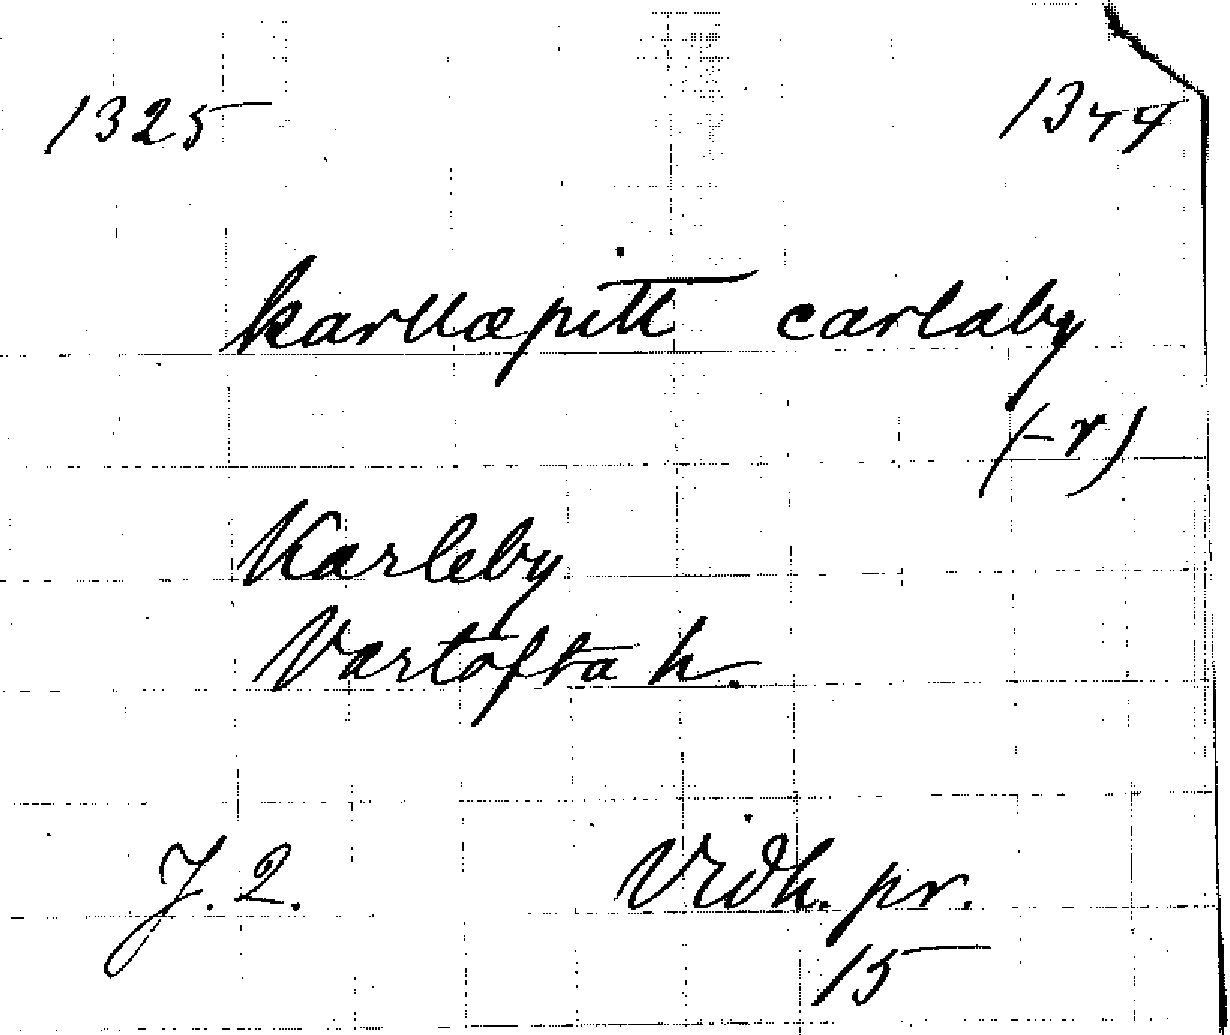 1325 1344
karllæpitt carlaby
(-r)
Karleby
Vartofta h.
J. 2. Vidh. pr.
15